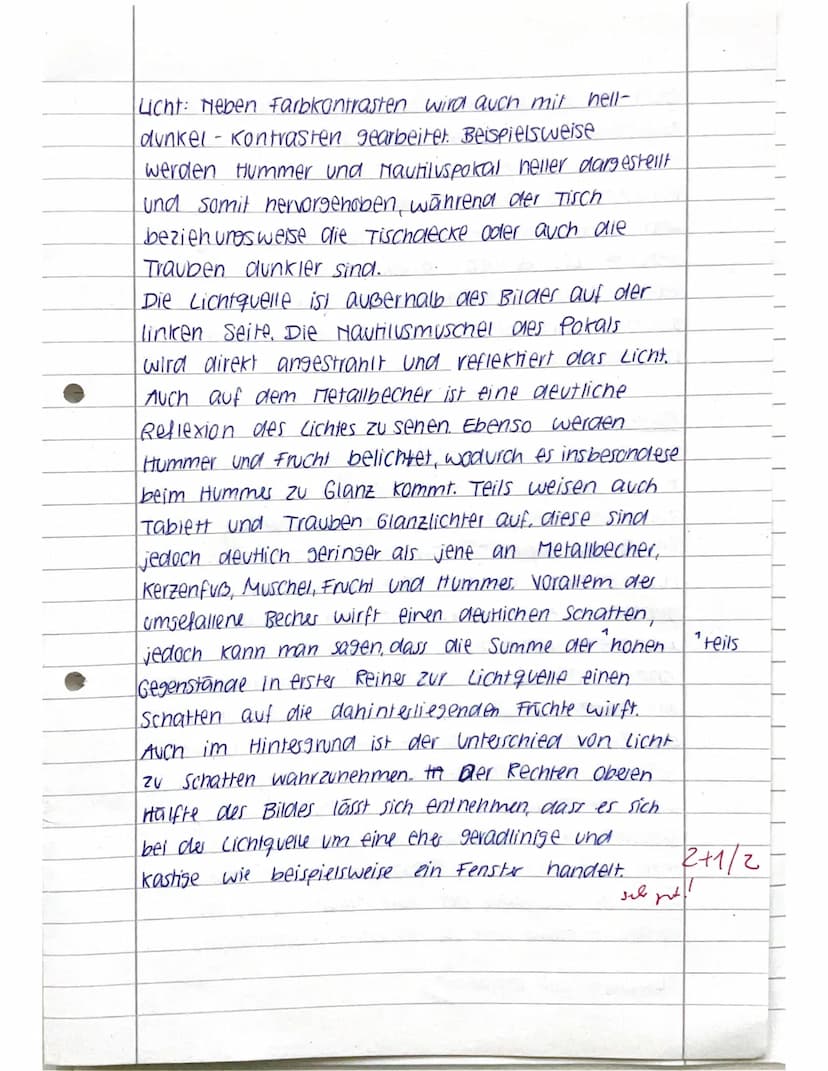 Licht: Neben Farbkontrasten wird auch mit hell-
dunkel - Kontrasten gearbeitet. Beispielsweise
werden Hummer und Nautiluspokal heller dargestellt
und somit hervorgehoben, während der Tisch
beziehungsweise die Tischdecke oder auch die
Trauben dunkler sind.
Die Lichtquelle ist außerhalb des Bildes auf der
linken Seite. Die Nautilusmuschel des Pokals
wird direkt angestrahlt und reflektiert das Licht.
Auch auf dem Metallbecher ist eine deutliche
Reflexion des Lichtes zu sehen. Ebenso werden
Hummer und Frucht belichtet, wodurch es insbesondese
beim Hummer zu Glanz kommt. Teils weisen auch
Tablett und Trauben Glanzlichter auf, diese sind
jedoch deutlich geringer als jene an Metallbecher,
Kerzenfuß, Muschel, Frucht und Hummer. Vorallem der
umgefallene Becher wirft einen deutlichen Schatten,
jedoch kann man sagen, dass die Summe der ¹ hohen ¹ teils
Gegenstände in erster Reihe zur Lichtquelle einen
Schatten auf die dahinterliegenden Früchte wirft.
Auch im Hintergrund ist der Unterschied von Licht
zu Schatten wahrzunehmen. Der Rechten oberen
Hälfte des Bildes lässt sich entnehmen, dass es sich
bei der Lichtquelle um eine eher geradlinige und
kastige wie beispielsweise ein Fenster handelt. 2+1/2
sehr gut!